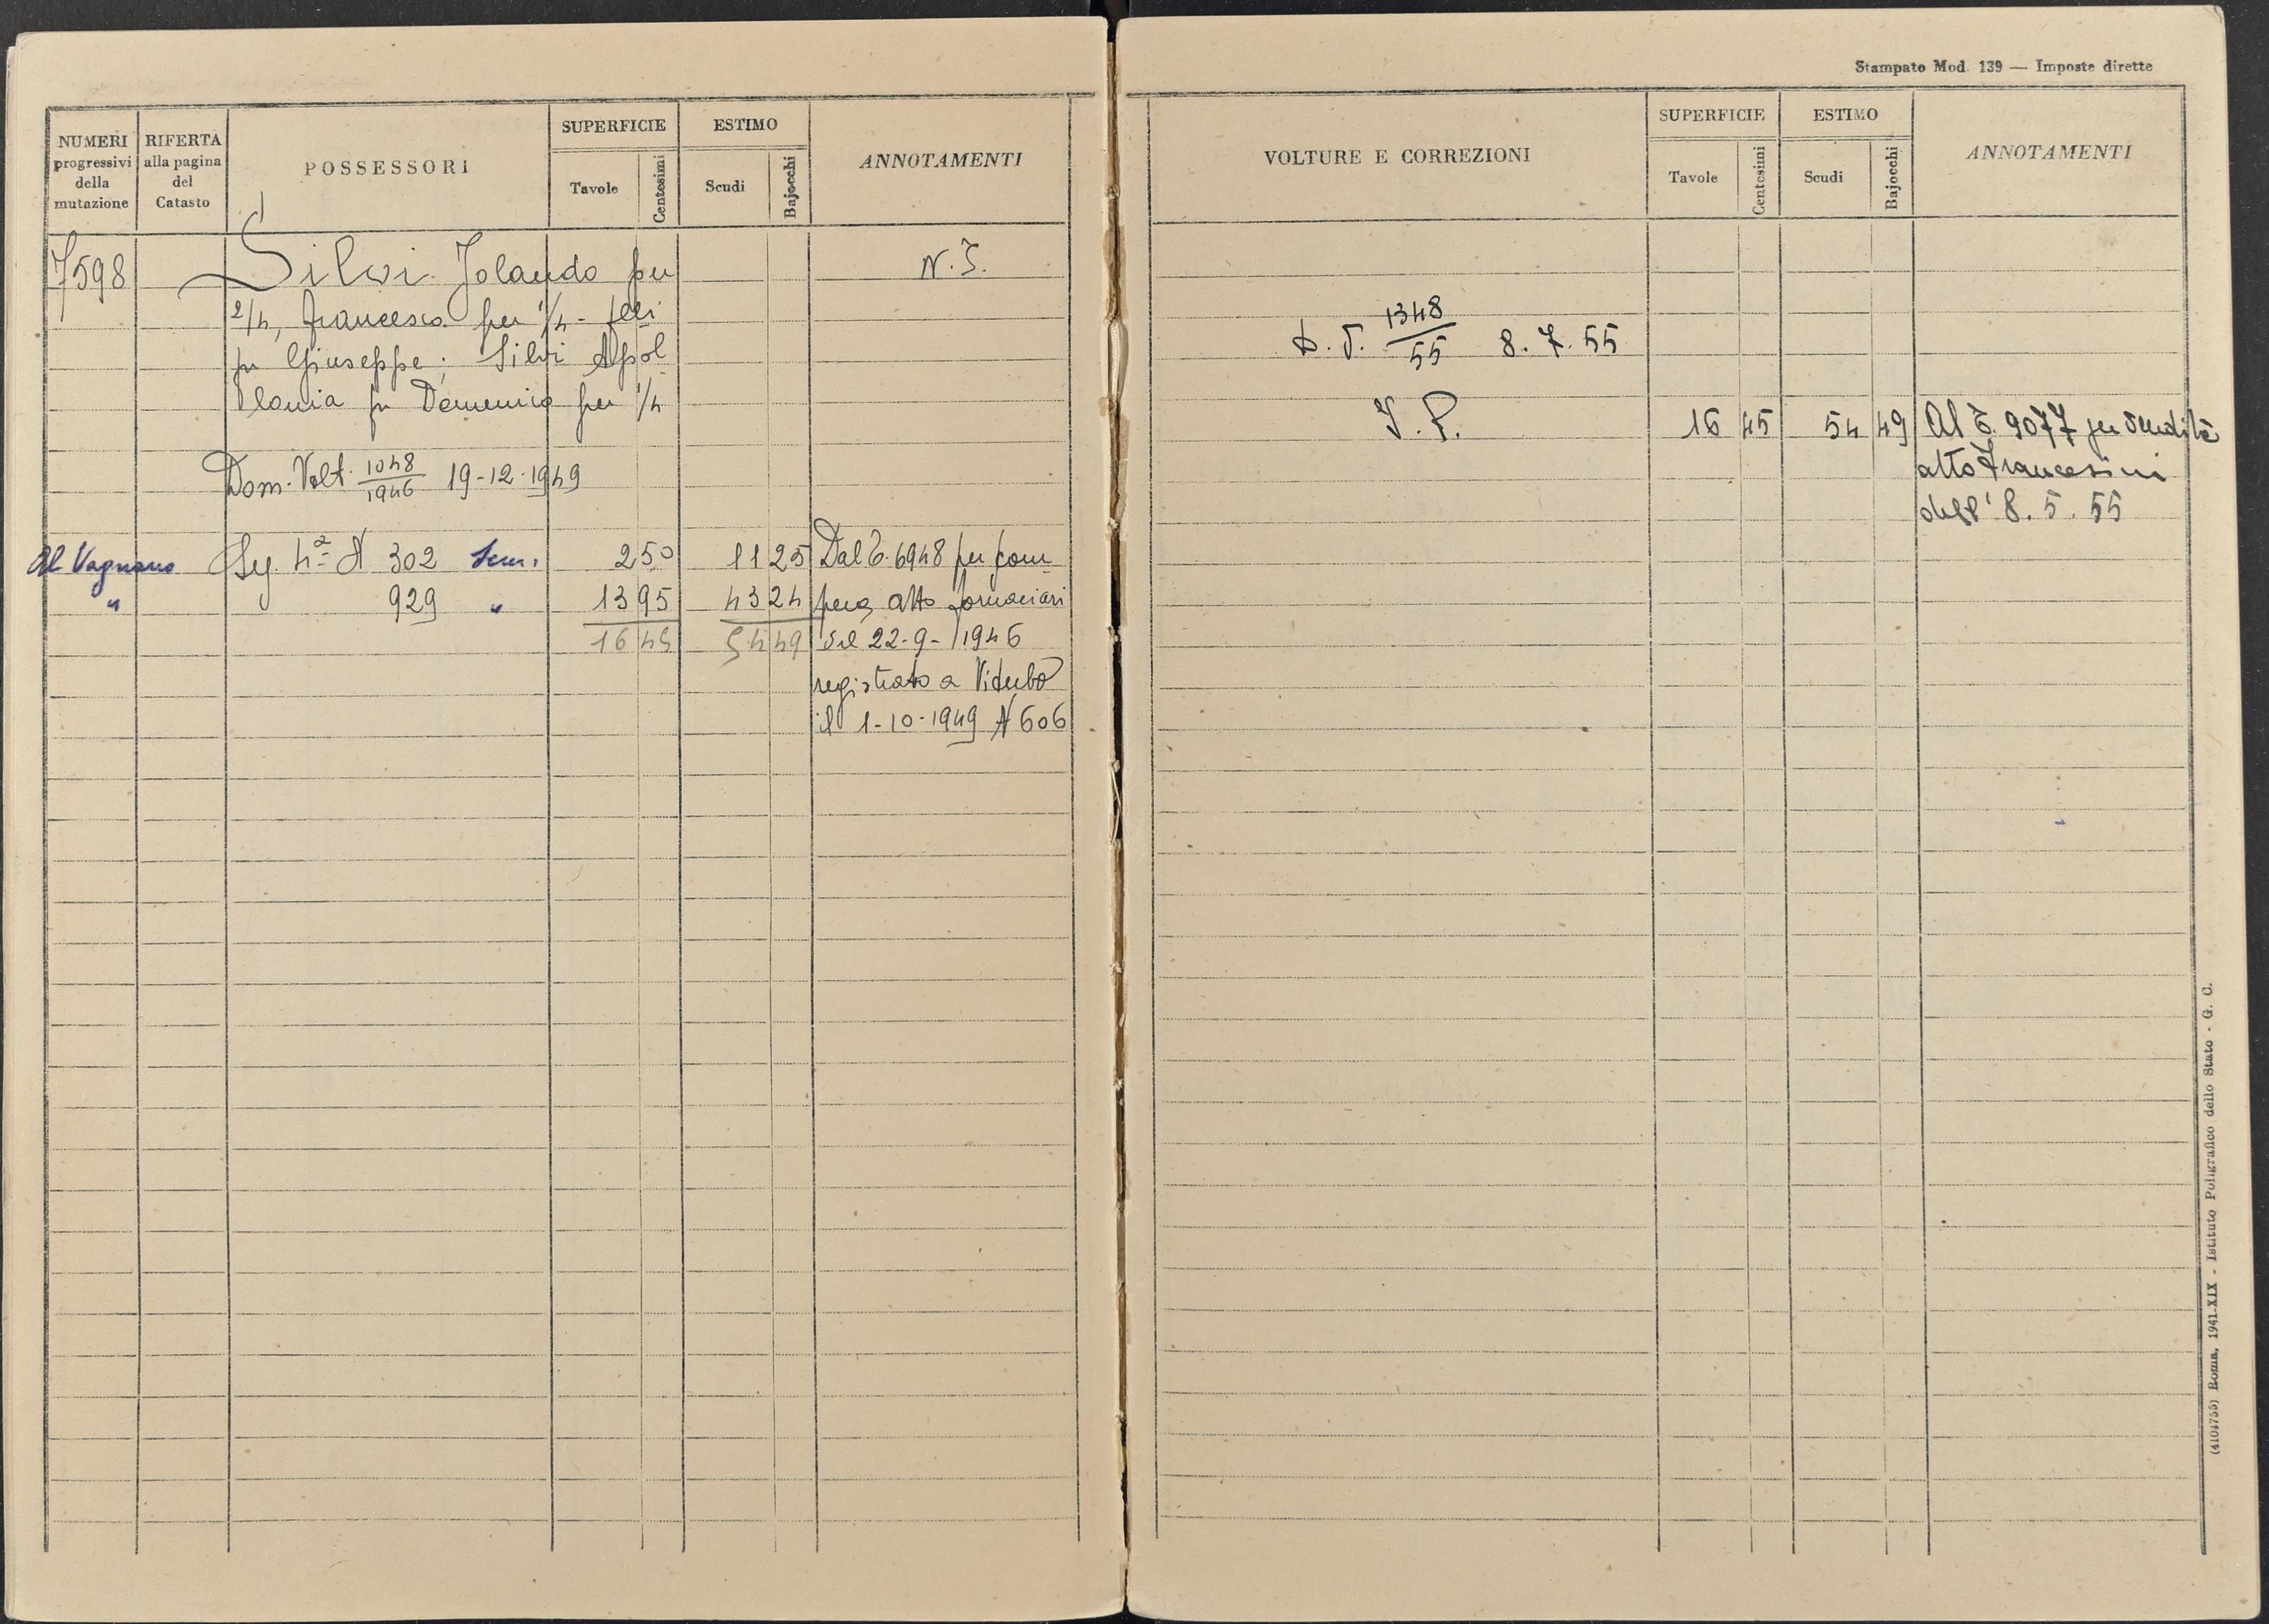 NUMERI progressivi della mutazione
RIFERTA alla pagina del Catasto
POSSESSORI
SUPERFICIE
Tavole
Centesimi
ESTIMO
Scudi
Bajocchi
ANNOTAMENTI
7598
Silvi Jolando per
2/4, Francesco per 1/4 - felli
fu Giuseppe; Silvi Apol
lonia fu Domenico per 1/4
N.S.
Dom. Volt. 1048/1946 19-12-1949
Al Vagnano Sez. 4ª N 302 Sem. 2 50 11 25 Dal C. 6948 per com
" 929 " 13 95 43 24 pera atto Fornaciari
16 45 54 49 del 22-9-1946
registrato a Viterbo
il 1-10-1949 N 606
Stampato Mod. 139 — Imposte dirette
VOLTURE E CORREZIONI
SUPERFICIE
Tavole
Centesimi
ESTIMO
Scudi
Bajocchi
ANNOTAMENTI
D. V. 1348/55 8. 7. 55
I. P. 16 45 54 49 Al C. 9077 per vendita
atto Francesini
dell' 8. 5. 55
(4104755) Roma, 1941-XIX - Istituto Poligrafico dello Stato - G. C.